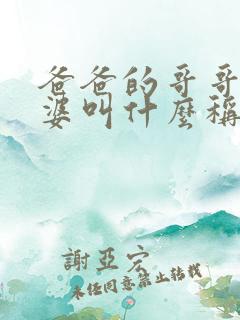 爸爸的哥哥
婆叫什麼稱
謝亞宏
未經同意禁止轉載